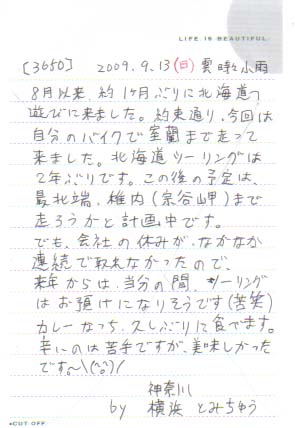 LIFE IS BEAUTIFUL.
[3650] 2009.9.13(日) 曇時々小雨
8月以来、約1ヶ月ぶりに北海道へ
遊びに来ました。約束通り、今回は
自分のバイクで室蘭まで走って
来ました。北海道ツーリングは
2年ぶりです。この後の予定は、
最北端、稚内(宗谷岬)まで
走ろうかと計画中です。
でも、会社の休みが、なかなか
連続で取れなかったので、
来年からは、当分の間、ツーリング
はお預けになりそうです(苦笑)
カレーなっち、久しぶりに食べてます。
辛いのは苦手ですが、美味しかった
です〜\(^o^)/
神奈川
by 横浜 とみちゅう
*CUT OFF